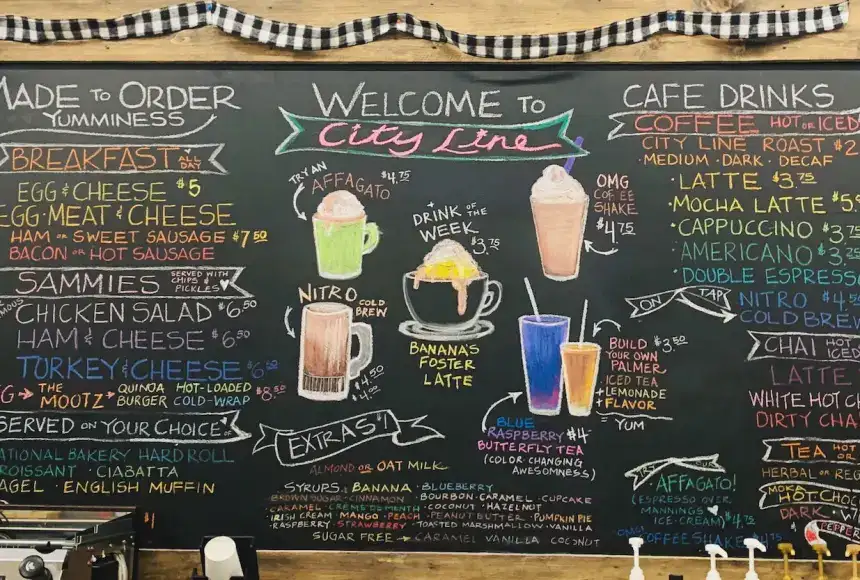 MADE TO ORDER
YUMMINESS
BREAKFAST ALL DAY
EGG & CHEESE $5
EGG · MEAT & CHEESE
HAM OR SWEET SAUSAGE $7.50
BACON OR HOT SAUSAGE
SAMMIES SERVED WITH CHIPS & PICKLES
CHICKEN SALAD $6.50
HAM & CHEESE $6.50
TURKEY & CHEESE $6.50
THE MOOTZ QUINOA BURGER HOT-LOADED COLD-WRAP $8.50
SERVED ON YOUR CHOICE
NATIONAL BAKERY HARD ROLL
CROISSANT · CIABATTA
BAGEL · ENGLISH MUFFIN
$1
WELCOME TO
City Line
TRY AN
AFFAGATO $4.75
DRINK OF THE
WEEK
$3.75
OMG
COFFEE
SHAKE
$4.75
NITRO COLD
BREW
$4.50
BANANA'S
FOSTER
LATTE
BUILD $3.50
YOUR OWN
PALMER
ICED TEA
+ LEMONADE
+ FLAVOR
= YUM
BLUE
RASPBERRY $4
BUTTERFLY TEA
(COLOR CHANGING
AWESOMNESS)
EXTRAS $1
ALMOND OR OAT MILK
SYRUPS: BANANA · BLUEBERRY
BROWN SUGAR · CINNAMON · BOURBON · CARAMEL · CUPCAKE
CARAMEL · CREME DE MENTH · COCONUT · HAZELNUT
IRISH CREAM · MANGO · PEACH · PEANUT BUTTER · PUMPKIN PIE
RASPBERRY · STRAWBERRY · TOASTED MARSHMALLOW · VANILLA
SUGAR FREE CARAMEL VANILLA COCONUT
CAFE DRINKS
COFFEE HOT OR ICED
CITY LINE ROAST $2
· MEDIUM · DARK · DECAF
· LATTE $3.75
· MOCHA LATTE $5
· CAPPUCCINO $3.75
· AMERICANO $3.25
· DOUBLE ESPRESSO
ON TAP NITRO $4.50
COLD BREW
CHAI HOT ICED
LATTE
WHITE HOT CH
DIRTY CHA
TEA HOT OR
HERBAL OR REG
MOKA HOT CHOC
DARK
PEPPER
AFFAGATO!
(ESPRESSO OVER
MANNINGS
ICE-CREAM) $4.75
OMG COFFEE SHAKE $4.75